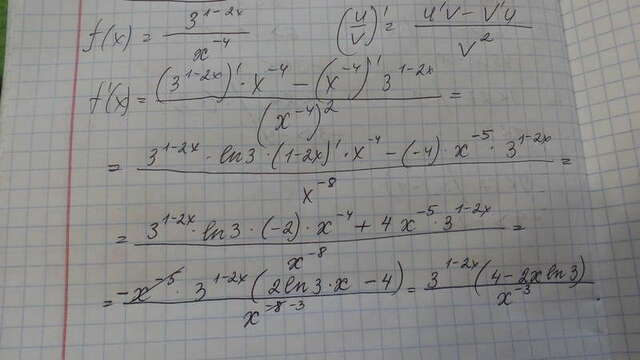 f(x) = 3^{1-2x} / x^{-4}    (u/v)' = (u'v - v'u) / v^2
f'(x) = ((3^{1-2x})' · x^{-4} - (x^{-4})' 3^{1-2x}) / (x^{-4})^2 =
= (3^{1-2x} · ln3 · (1-2x)' · x^{-4} - (-4) · x^{-5} · 3^{1-2x}) / x^{-8} =
= (3^{1-2x} · ln3 · (-2) · x^{-4} + 4x^{-5} · 3^{1-2x}) / x^{-8} =
= -x^{-5} · 3^{1-2x} (2ln3 · x - 4) / x^{-8 -3} = 3^{1-2x} (4 - 2x ln3) / x^{-3} .